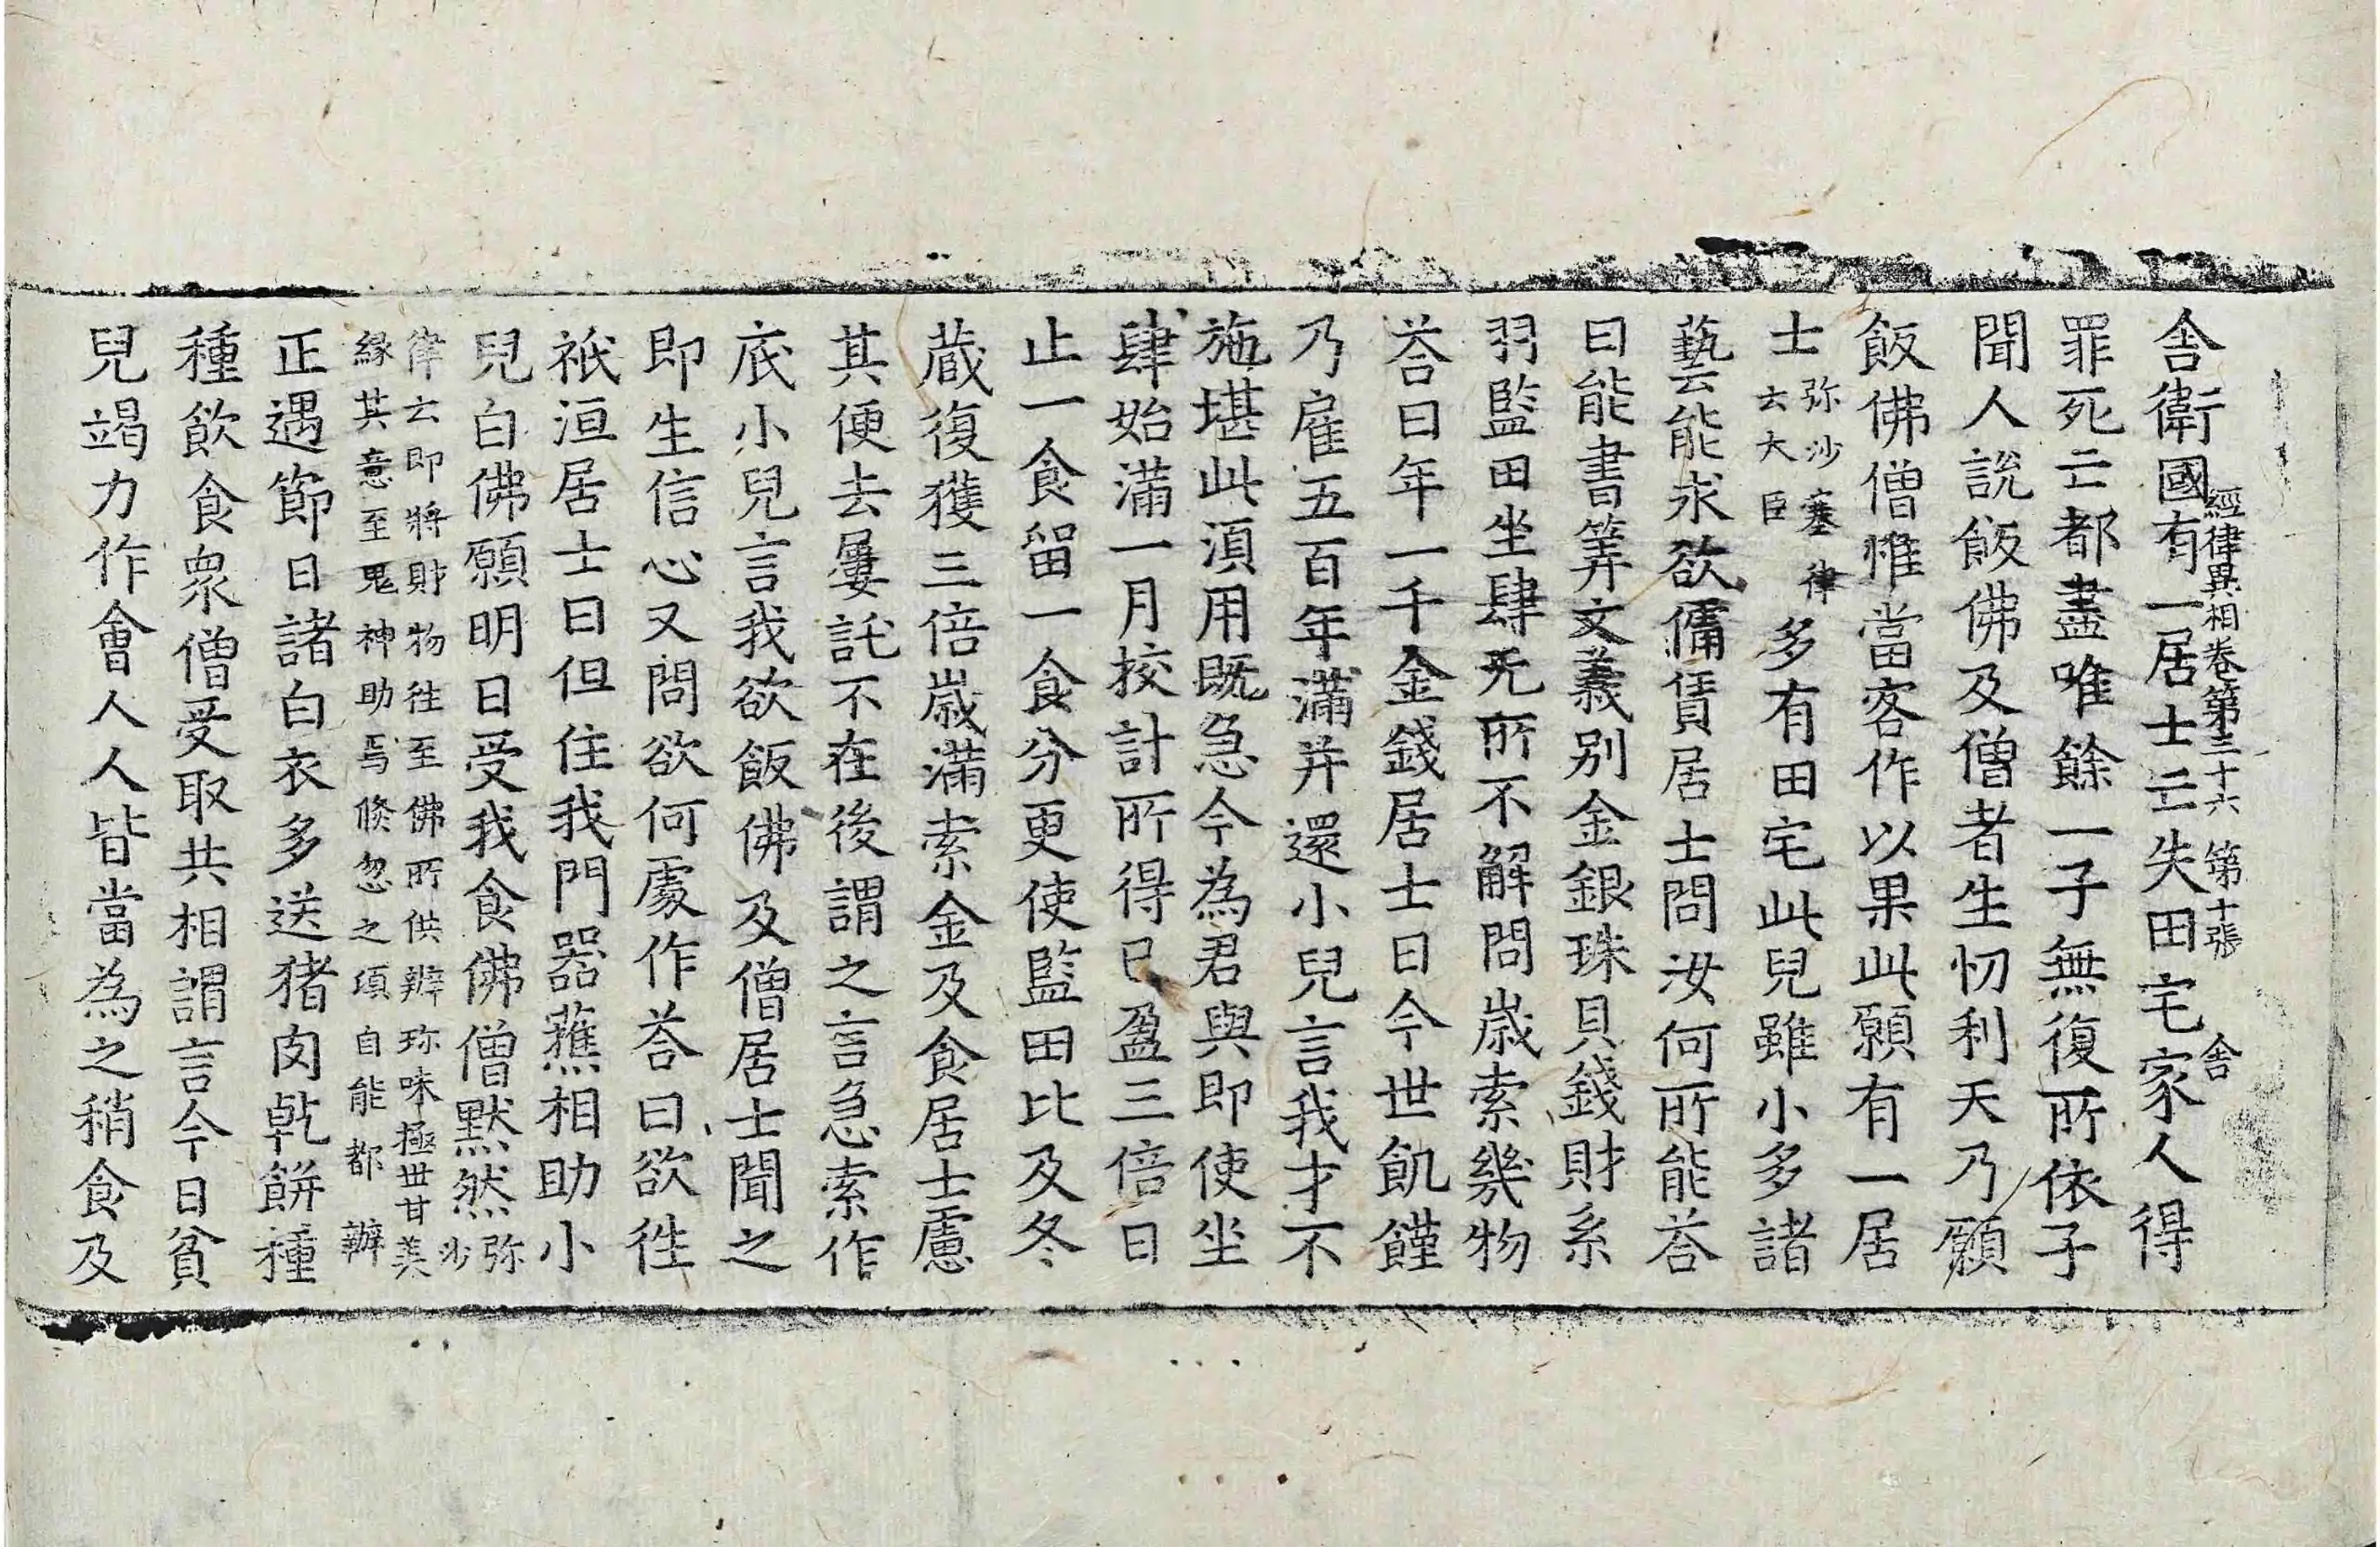 經律異相卷第三十六 第十張 舎
舎衛國有一居士亡失田宅家人得
罪死亡都盡唯餘一子無復所依子
聞人說飯佛及僧者生忉利天乃願
飯佛僧惟當客作以果此願有一居
士弥沙塞律云大臣多有田宅此兒雖小多諸
藝能求欲傭賃居士問汝何所能荅
曰能書筭文義別金銀珠貝錢財糸
羽監田坐肆无所不解問歲索幾物
荅曰年一千金錢居士曰今世飢饉
乃雇五百年滿并還小兒言我才不
施堪此湏用既急今為君與即使坐
肆始滿一月挍計所得已盈三倍日
止一食留一食分更使監田比及冬
蔵復獲三倍歲滿索金及食居士慮
其便去屢託不在後謂之言急索作
底小兒言我欲飯佛及僧居士聞之
即生信心又問欲何處作荅曰欲徃
祇洹居士曰但住我門器蕉相助小
兒白佛願明日受我食佛僧黙然弥沙
律云即將財物徃至佛所供辦珎味極世甘美
緣其意至鬼神助焉倐忽之頃自能都辦
正遇節日諸白衣多送猪肉乹餅種
種飲食衆僧受取共相謂言今日貧
兒竭力作會人人皆當為之稍食及